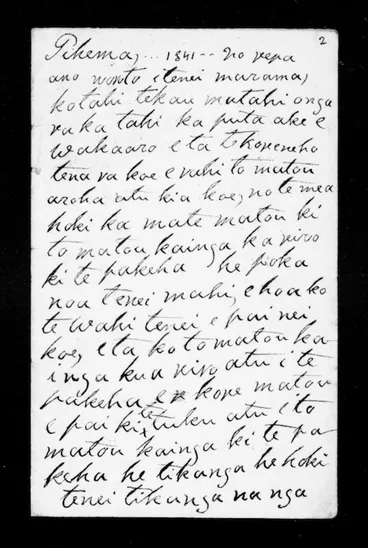 2
Tihema, ... 1841 -- No repa
ano wonto i tenei marama,
kotahi tekau matahi onga
ra ka tahi ka puta ake e
wakaaro e ta te koreneho
tena ra koe e rahi to matou
aroha atu kia koe, no te mea
hoki ka mate matou ki
to matou kainga ka riro
ki te pakeha he poka
noa tenei mahi, e hoa ko
te wahi tenei e pai nei
koe, e ta, ko to matou ka
inga kua riro atu i te
pakeha e kore matou
e pai ki te tuku atu i to
matou kainga ki te pa
keha he tikanga he hoki
tenei tikanga na nga